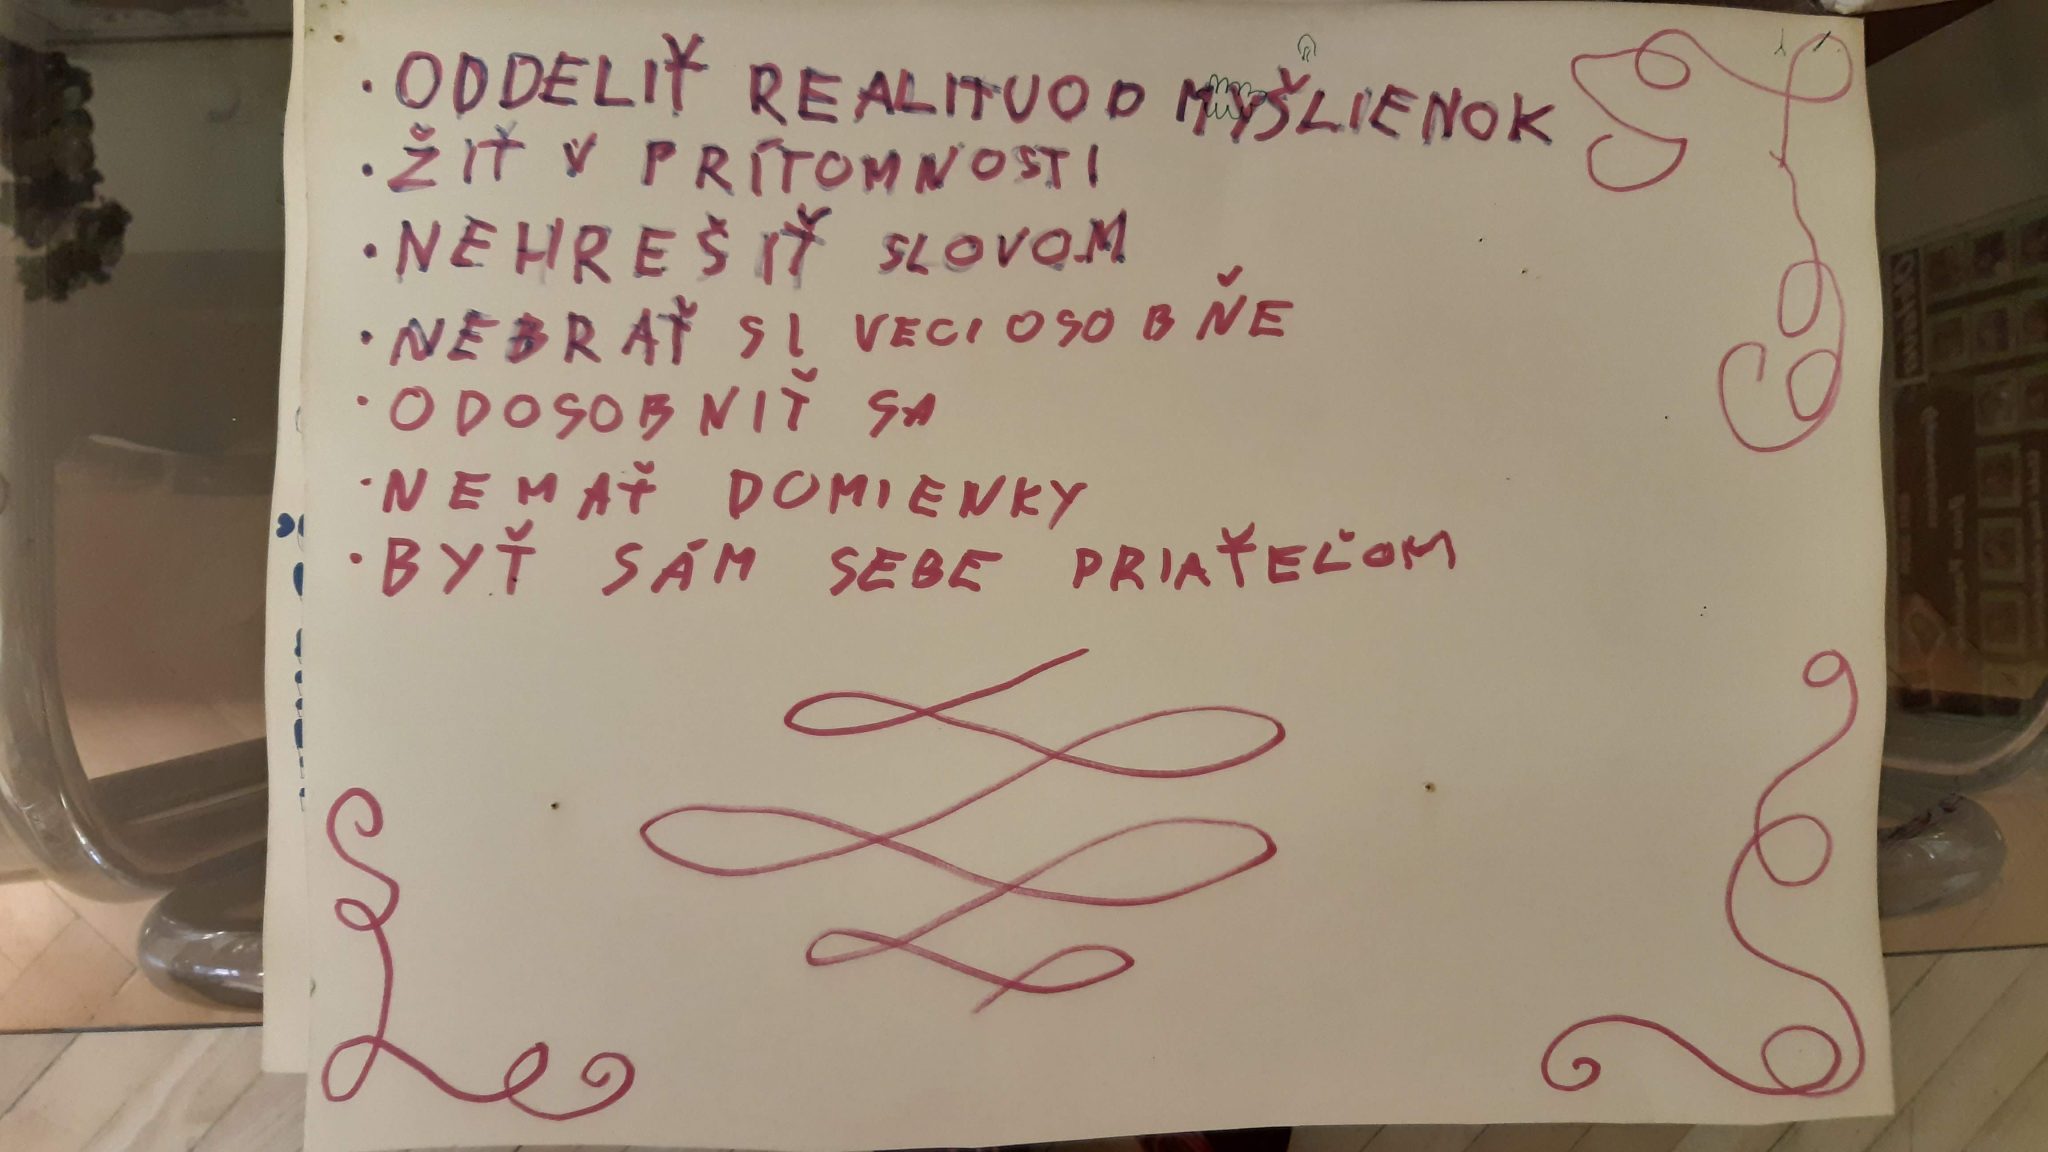 · ODDELIŤ REALITU OD MYŠLIENOK
· ŽIŤ V PRÍTOMNOSTI
· NEHREŠIŤ SLOVOM
· NEBRAŤ SI VECI OSOBŇE
· ODOSOBNIŤ SA
· NEMAŤ DOMIENKY
· BYŤ SÁM SEBE PRIAŤEĽOM